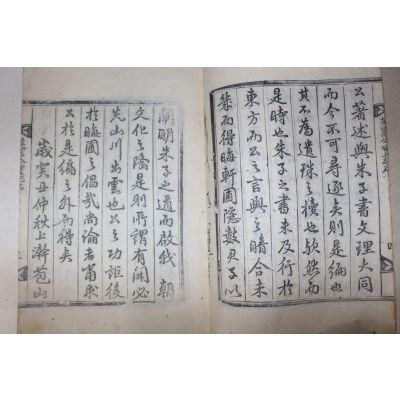 公著述與朱子書文理大同
而今不可尋逐矣則是編也
其不爲遺珠之櫝也歟然而
是時也朱子之書未及行於
東方而公之言與之暗合未
幾而得晦軒圃隱數君子以
闡明朱子之道而啟我 朝
文化之隆是則所謂有開必
先山川出雲也公之功詎後
於晦圃之倡哉尚論者當求
公於是編之外而得矣
歲癸丑仲秋上澣苞山